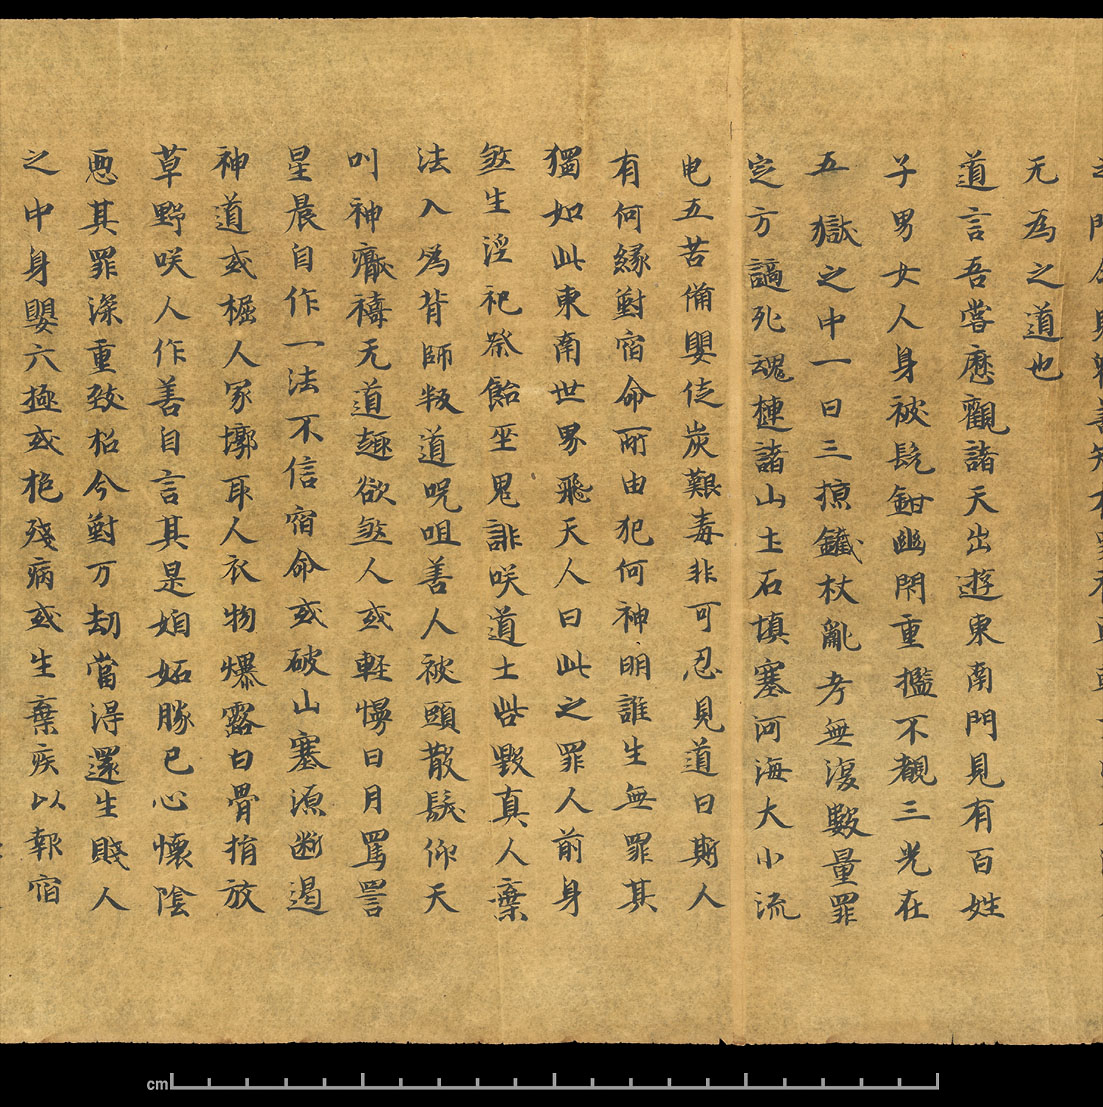 无為之道也
道言吾嘗歷觀諸天出遊東南門見有百姓
子男女人身被髡鉗幽閇重檻不覩三光在
五獄之中一日三掠鐵杖亂考無復數量罪
定方謫死魂槤諸山土石填塞河海大小流
曵五苦備嬰徒炭艱毒非可忍見道曰斯人
有何緣對宿命所由犯何神明誰生無罪其
獨如此東南世界飛天人曰此之罪人前身
煞生淫祀祭餄巫鬼誹咲道士呰毀真人棄
法入為背師叛道呪咀善人被頭散髮仰天
叫神癥禱无道趣欲煞人或輕慢日月罵詈
星晨自作一法不信宿命或破山塞源斷遏
神道或掘人冢墎取人衣物爆露白骨捐放
草野咲人作善自言其是妲妬勝已心懷陰
惡其罪深重致招今對万劫當得還生賤人
之中身嬰六極或尪殘病或生棄疾以報宿